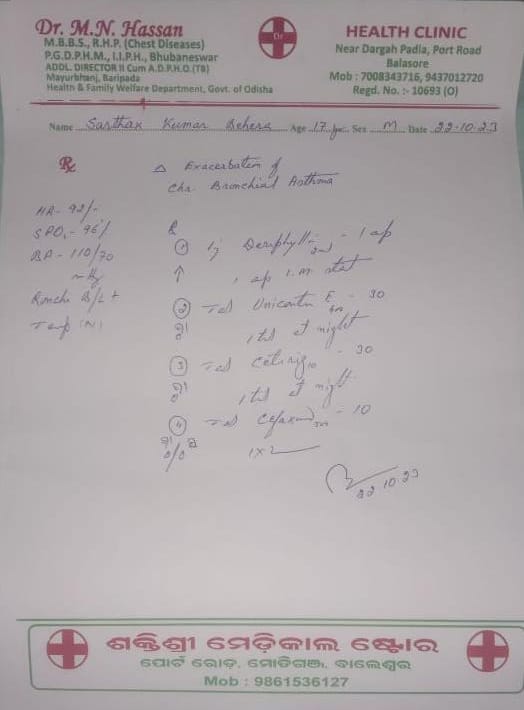 Dr. M.N. Hassan
M.B.B.S., R.H.P. (Chest Diseases)
P.G.D.P.H.M., I.I.P.H., Bhubaneswar
ADDL. DIRECTOR II Cum A.D.P.H.O.(TB)
Mayurbhanj, Baripada
Health & Family Welfare Department, Govt. of Odisha
Dr
HEALTH CLINIC
Near Dargah Padia, Port Road
Balasore
Mob : 7008343716, 9437012720
Regd. No. :- 10693 (O)
Name Sarthak Kumar Behera Age 17 yr Sex M Date 22-10-23
Rx
△ Exacerbation of
Chr. Bronchial Asthma
HR- 92/-
SPO2- 96%
BP- 110/70
mHg
Ronchi B/L +
Temp (N)
R
① Inj Deriphyllin - 1 ap
1 ap I.M. stat
② Tab Unicontin E - 30
1 tab at night
③ Tab Cetiriz 10 - 30
1 tab at night
④ Tab - 10
1x2
22.10.23
ଶକ୍ତିଶ୍ରୀ ମେଡ଼ିକାଲ ଷ୍ଟୋର
ପୋର୍ଟ ରୋଡ଼, ମୋତିଗଞ୍ଜ, ବାଲେଶ୍ୱର
Mob : 9861536127